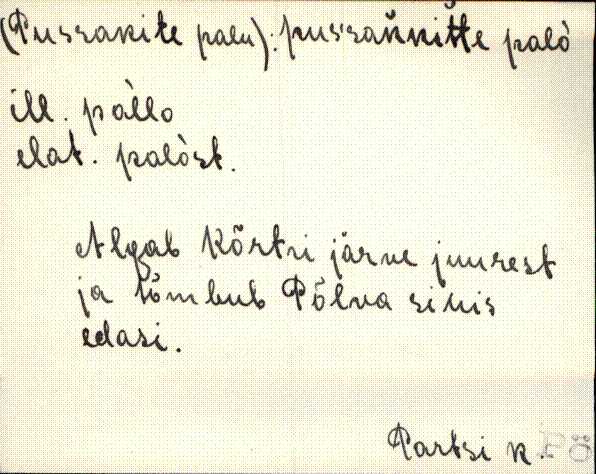 (Pussakite palu): pussak̆kit̆t̆e palò
ill. pàllo
elat. palòst.
Algab Kõrtsi järve juurest
ja tõmbub Põlva sihis
edasi.
Partsi k. Põ